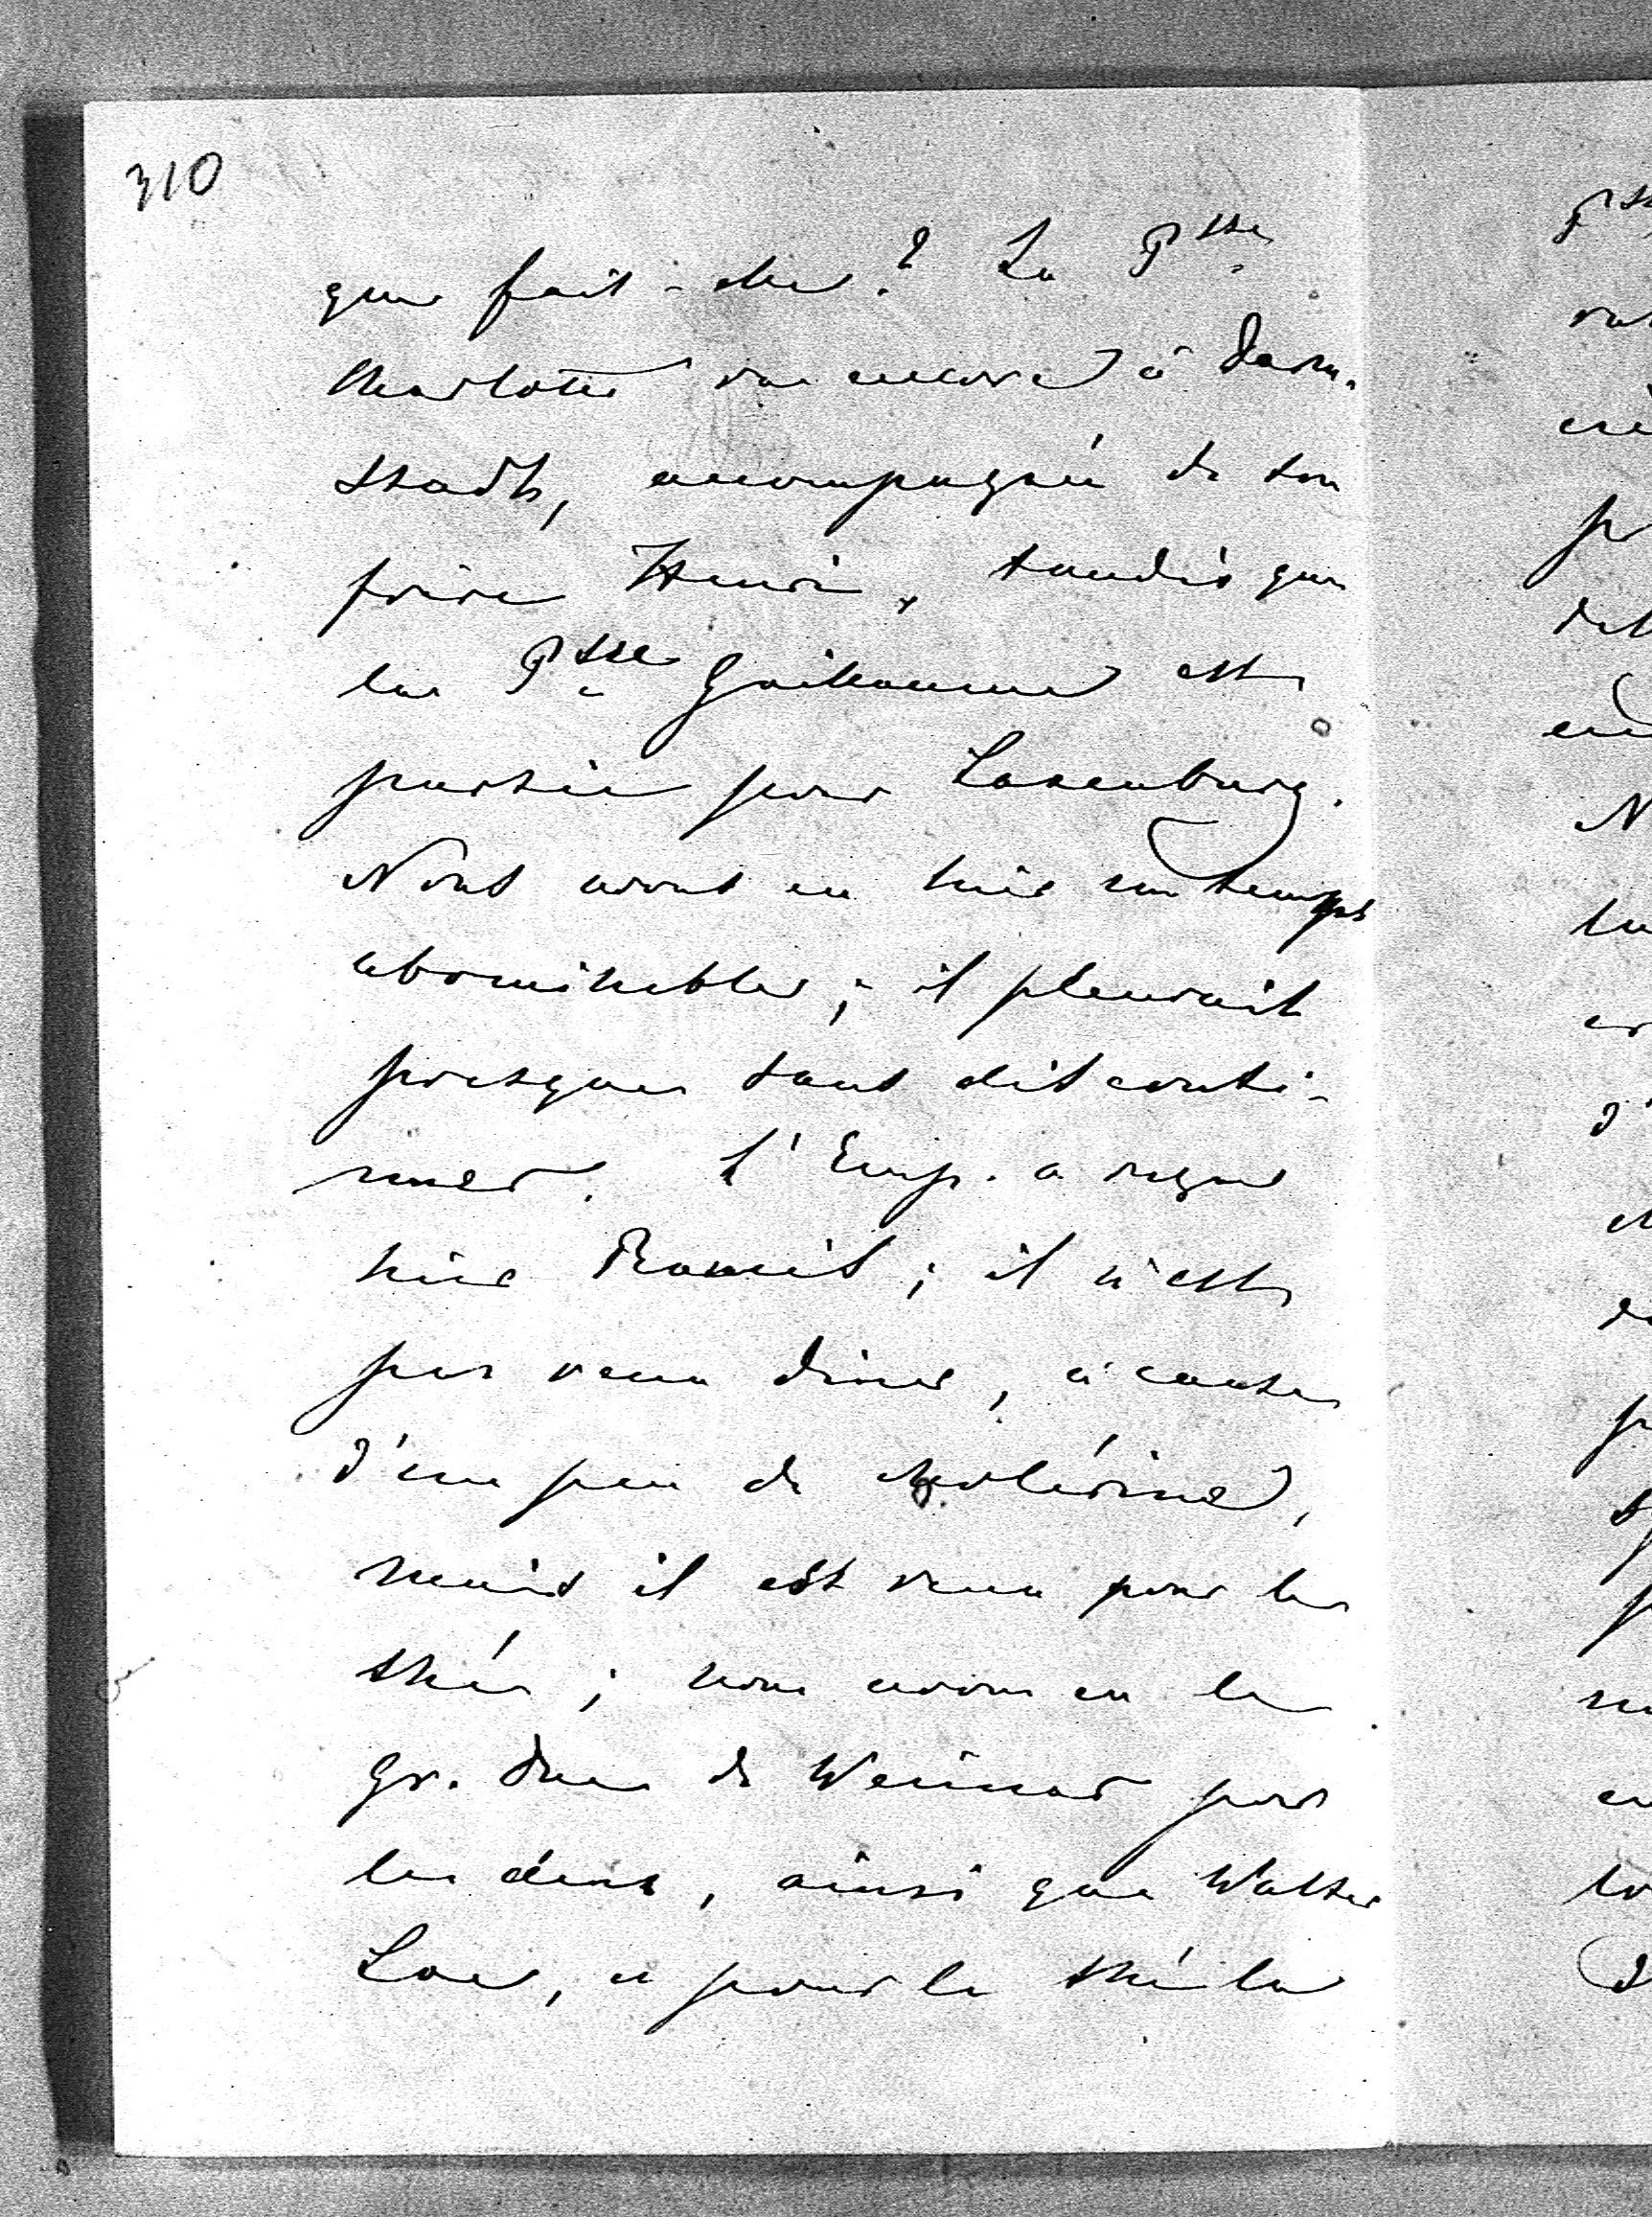 310
que fait-elle? La Psse
Charlotte va encore à Darm-
stadt, accompagnée de son
frère Henri, tandis que
la Psse Guillaume est
partie pour Laxenburg.
Nous avons eu hier un temps
abominable; il pleuvait
presque sans disconti-
nuer. L'Emp. a reçu
hier; il n'est
pas venu dîner, à cause
d'un peu de cholérine,
mais il est venu pour le
thé; nous avons eu le
gr. duc de Weimar pour
le dîner, ainsi que Walter
Loe, et pour le thé la